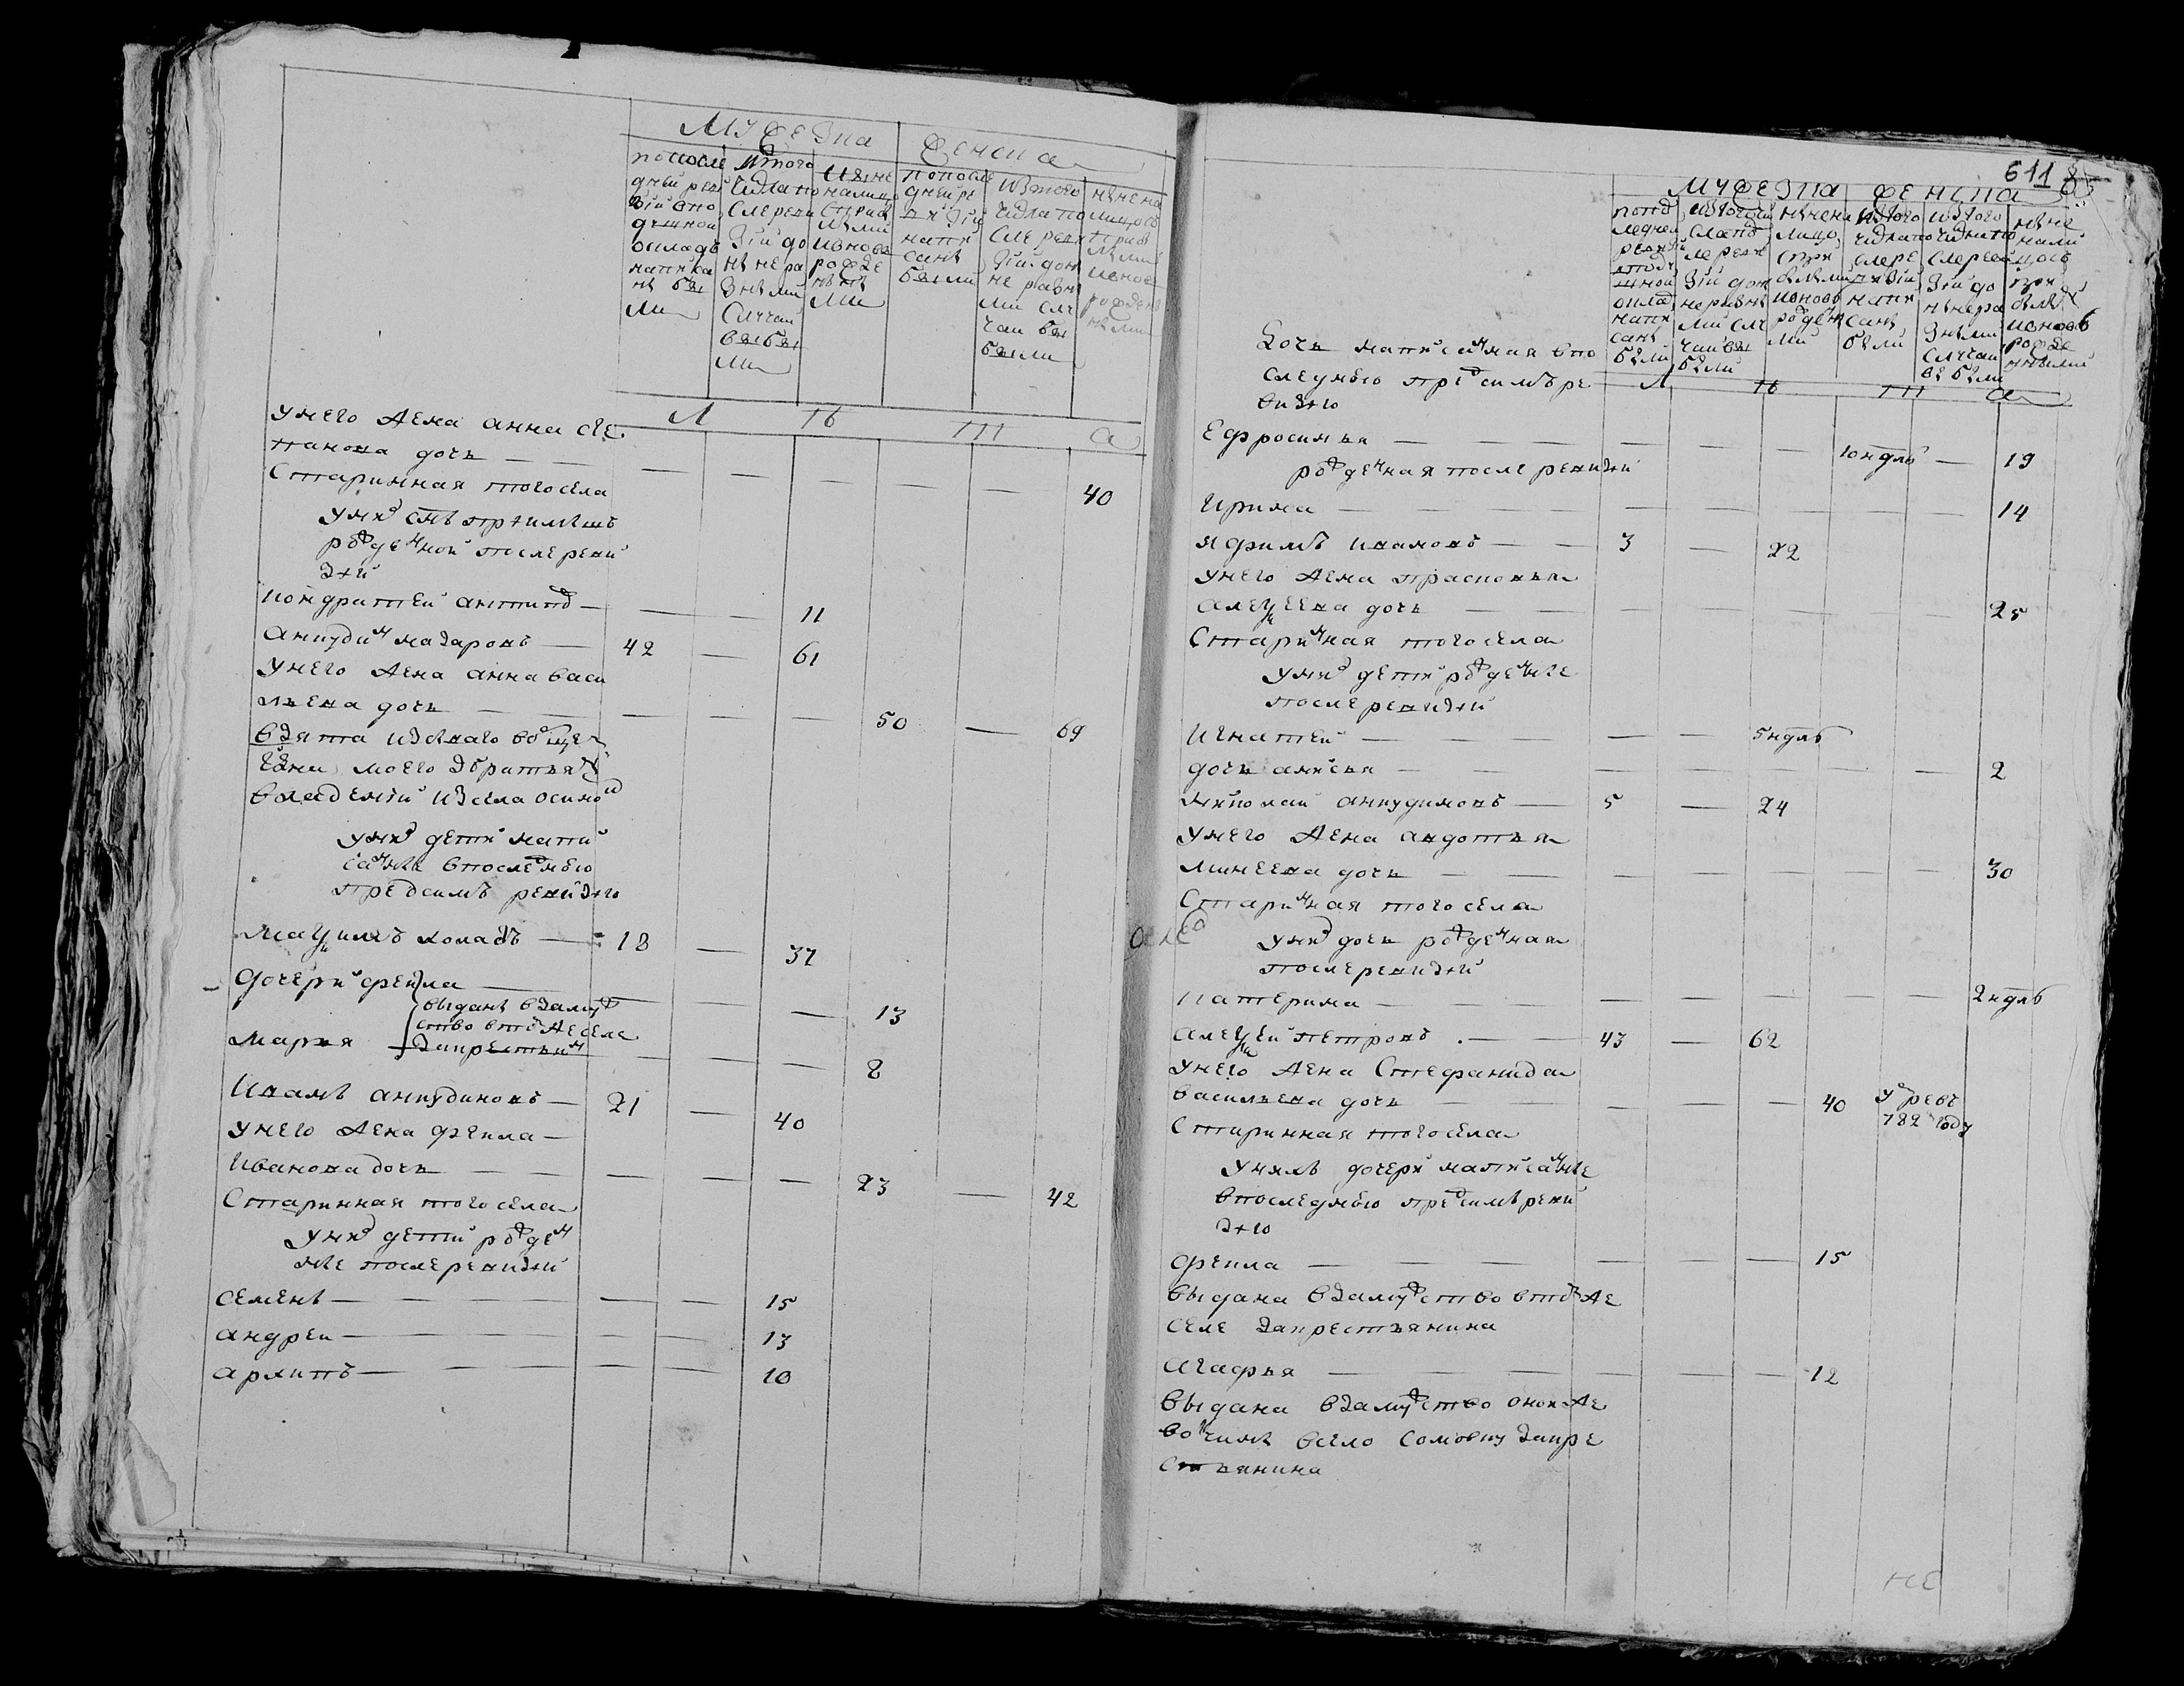 мужеска женска
попосле
дней реви
зiи впо
душной
окладъ
написа
ны бы
ли
изтого
числа по
сле реви
зiи до
ны не ра
зными
случаи
выбы
ли
ныне
налицо
сприб
ылми
иновоо
рожде
нны
ми
попосле
дней ре
визiи
напи
саны
были
изтого
числа по
сле реви
зiи дон
не разны
ми слу
чаи вы
были
ныне на
лицо съ
приб
ылми
иново
рожден
ными
л ть лт а
унего жена анна сте
панова дочь — — — — — — — 40
Старинная тогосела
уних сынъ приимышъ
рожденной послереви
зiи
Кондратей антипов — — 11
Анкудим назаровъ — 42 — 61
унего жена анна васи
льева дочь — — — — — 50 — 69
взята изднаго вобще
моего збратьями
владенiи изсела осинов
уних дети напи
санные впоследнюю
предсимъ ревизiю
Максимъ холастъ — 18 — 37
дочери фекла — — 13
выданы взамуж
ство втомже селе
Марья закрестьян — — 8
Иванъ анкудиновъ — 21 — 40
унего жена фекла —
Иванова дочь — — — — — 23 — 42
Старинная тогосела
уних дети рожден
ные послеревизiи
семенъ — — — — — — 15
андреи — — — — — — 13
архипъ — — — — — — 10
611
мужеска женска
попос
ледней
ревизiи
вподу
шной
оклад
напи
саны
были
изтого чи
сла пос
ле реви
зiи дон
не разны
ми слу
чаи вы
были
ныне на
лицо
спри
былыми
иново
рожден
ми
изтого
числа по
сле ре
визiи
напи
саны
были
изтого
числа по
сле реви
зiи до
ны не ра
зными
случаи
вы были
ныне
нали
цо съ
при
были
иново
рожде
нными
л ть лт а
Дочь написанная впо
следнюю предсимъ ре
визiю
Ефросинья — — — — — — 10 ндль — 19
рожденная после ревизiи
Ирина — — — — — — — — 14
Яфимъ ивановъ — — 3 — 22
унего жена прасковья
алексеева дочь — — — — — — — 25
Старинная тогосела
уних дети рожденые
послеревизiи
Игнатей — — — — — — 5 ндль
дочь анисья — — — — — — — 2
Николай анкудиновъ — 5 — 24
унего жена авдотья
Минеева дочь — — — — — — — 30
Старинная того села
уних дочь рожденная
послеревизiи
Катерина — — — — — — — 2 ндль
Алексей петровъ — — 43 — 62
унего жена Стефанида
васильева дочь — — — — — 40 умре въ
782 году
Старинная тогосела
унихъ дочери написанные
впоследнюю предсимъ реви
зiю
фекла — — — — — — — 15
выдана взамужство втомже
селе закрестьянина
Агафья — — — — — — — 12
выдана взамужство оной же
вотчины всело Сомовку закре
стьянина